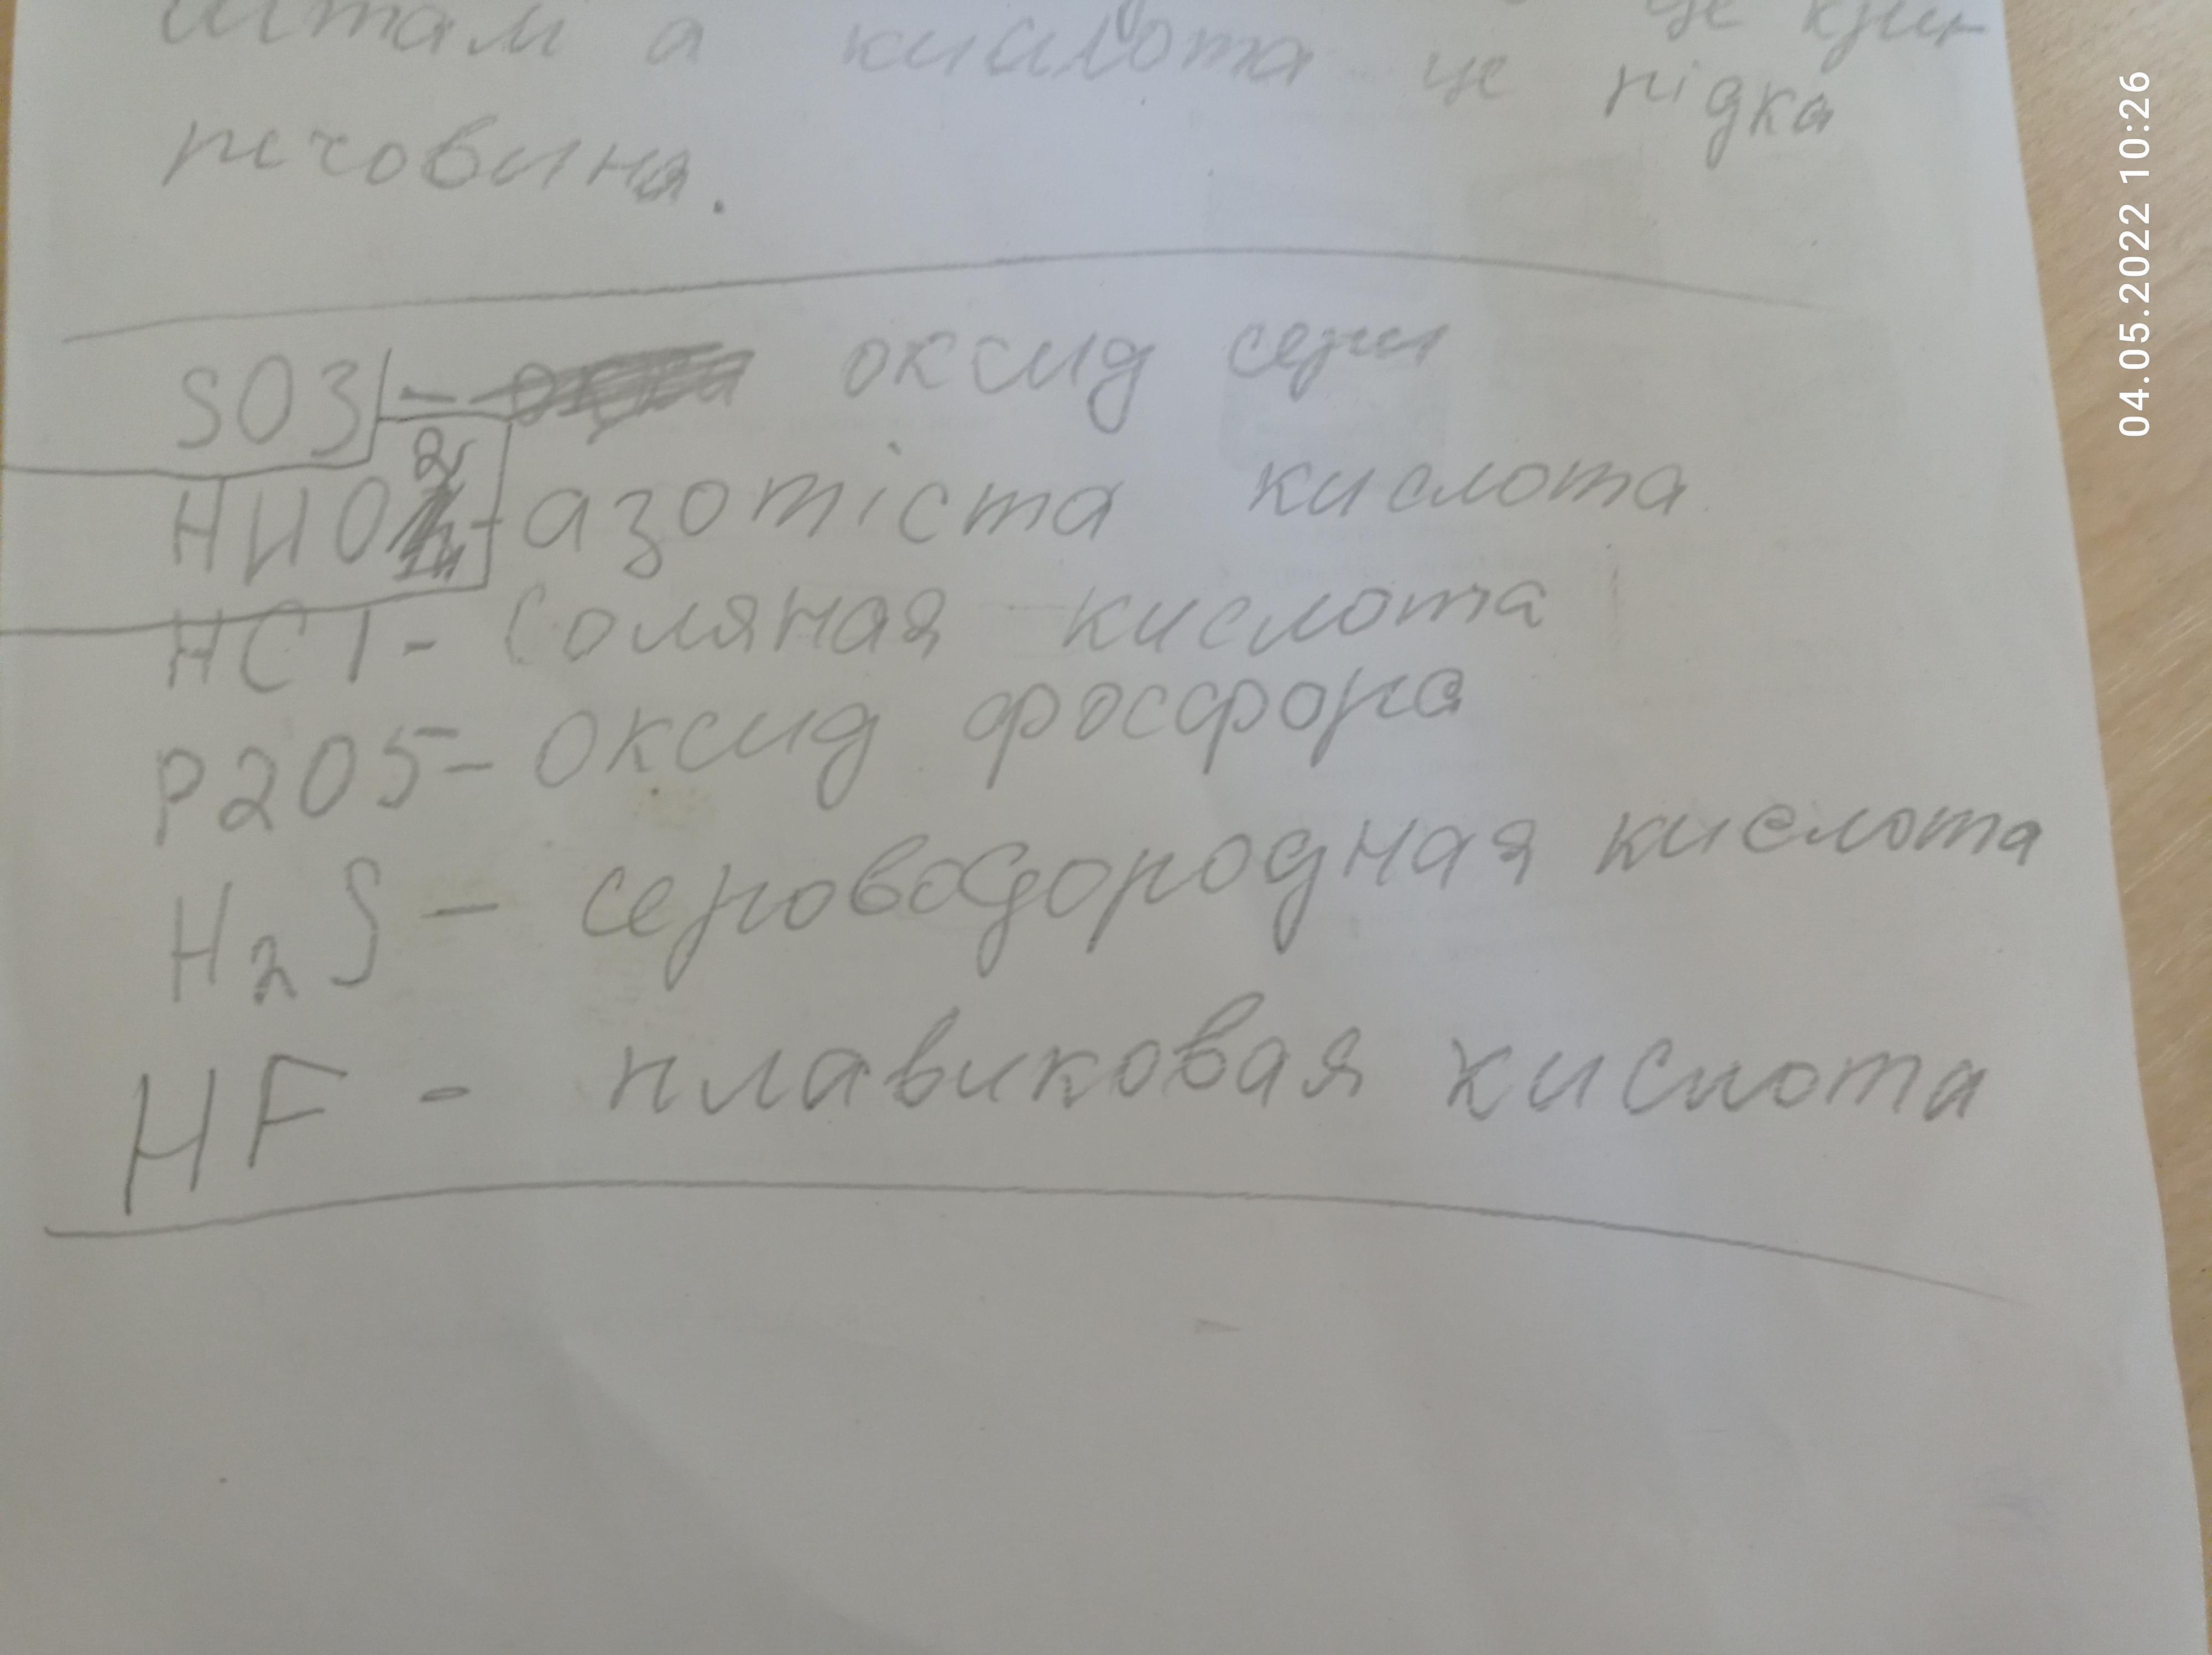 це крис-
штам а кислота це рідка
речовина.
SO3 - оксид серы
HNO2 - азотіста кислота
HCl - Соляная кислота
P2O5 - оксид фосфора
H2S - сероводородная кислота
HF - плавиковая кислота
04.05.2022 10:26